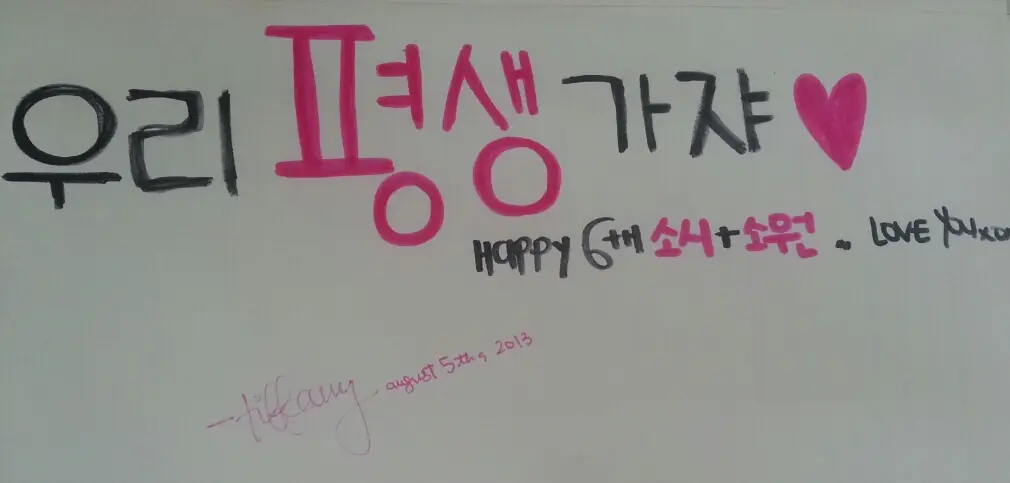 우리 평생 가쟈♥
HAPPY 6th 소시+소원 ~ LOVE YOU xo
-tiffany. august 5th, 2013